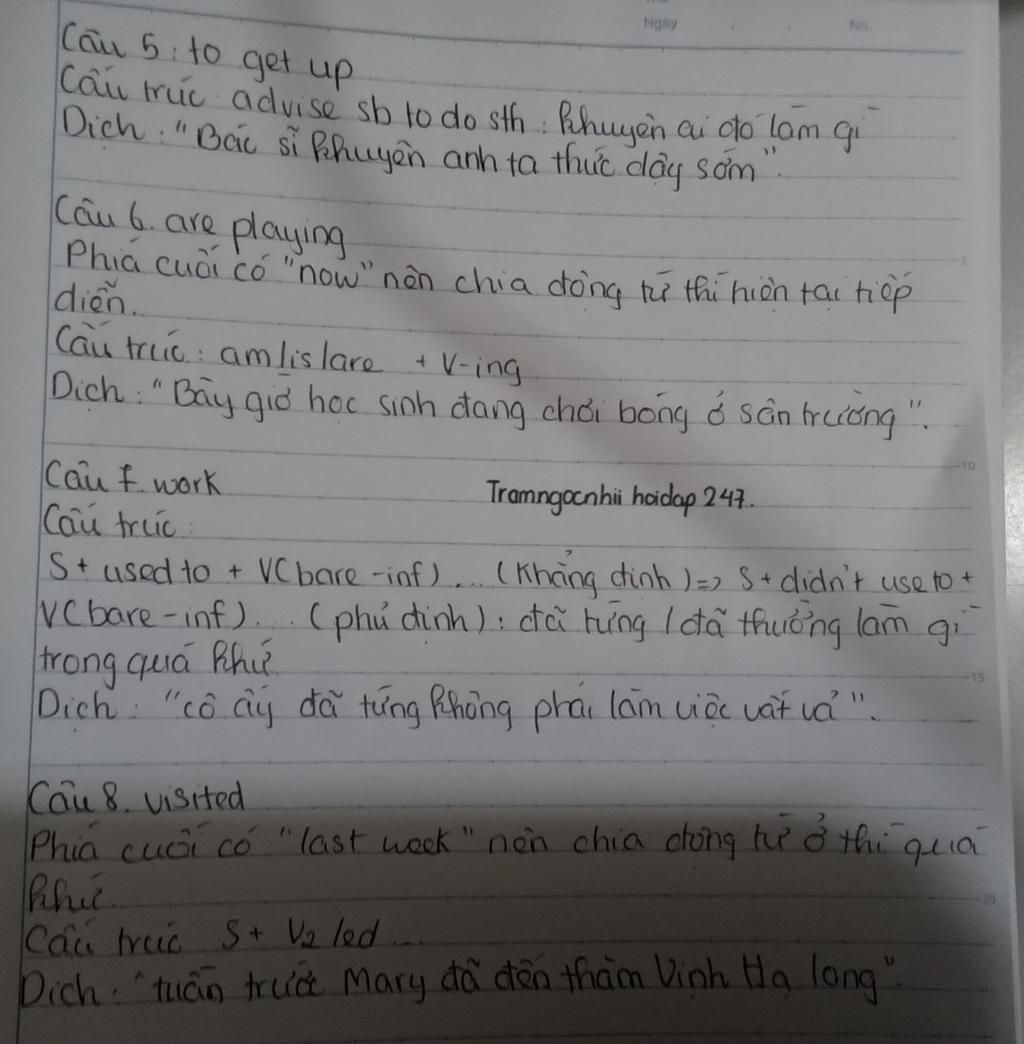 Ngày No.
Câu 5: to get up
Cấu trúc: advise sb to do sth: khuyên ai đó làm gì
Dịch: "Bác sĩ khuyên anh ta thức dậy sớm".
Câu 6. are playing
Phía cuối có "now" nên chia động từ thì hiện tại tiếp
diễn.
Cấu trúc: am/is/are + V-ing
Dịch: "Bây giờ học sinh đang chơi bóng ở sân trường".
Câu 7. work
Tramngocnhii hoidap 247.
Cấu trúc:
S + used to + V(bare-inf)... (khẳng định) => S + didn't use to +
V(bare-inf)... (phủ định): đã từng / đã thường làm gì
trong quá khứ
Dịch: "cô ấy đã từng không phải làm việc vất vả".
Câu 8. visited
Phía cuối có "last week" nên chia động từ ở thì quá
khứ
Cấu trúc S + V2/ed...
Dịch: "tuần trước Mary đã đến thăm Vịnh Hạ long"
5
10
15
20